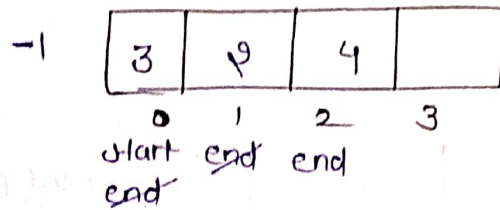 -1 3 2 4
0 1 2 3
start end end
end